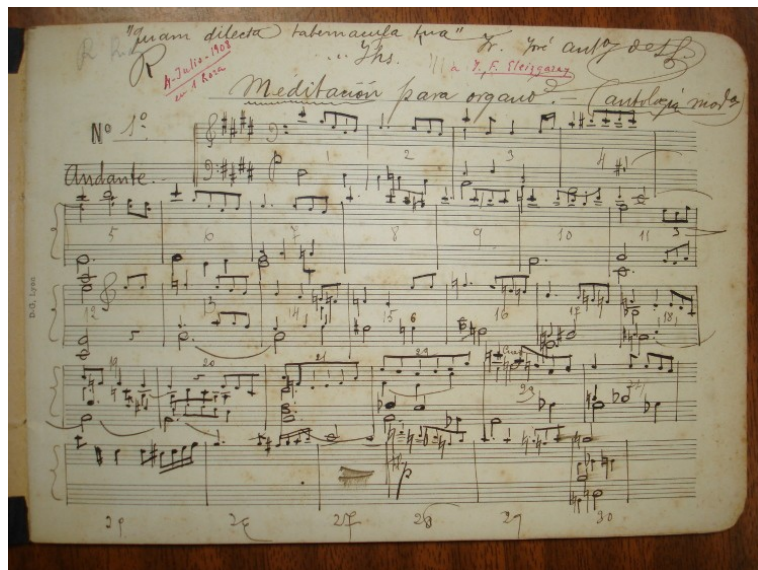 "Quam dilecta tabernacula tua" Fr. José Antº de
Jhs.
4-Julio-1908
en 1 hora
Meditación para organo. - (antología moda)
Nº 1º
Andante.
1 2 3 4
5 6 7 8 9 10 11
12 13 14 15 16 17 18
19 20 21 22 23
25 26 27 28 29 30